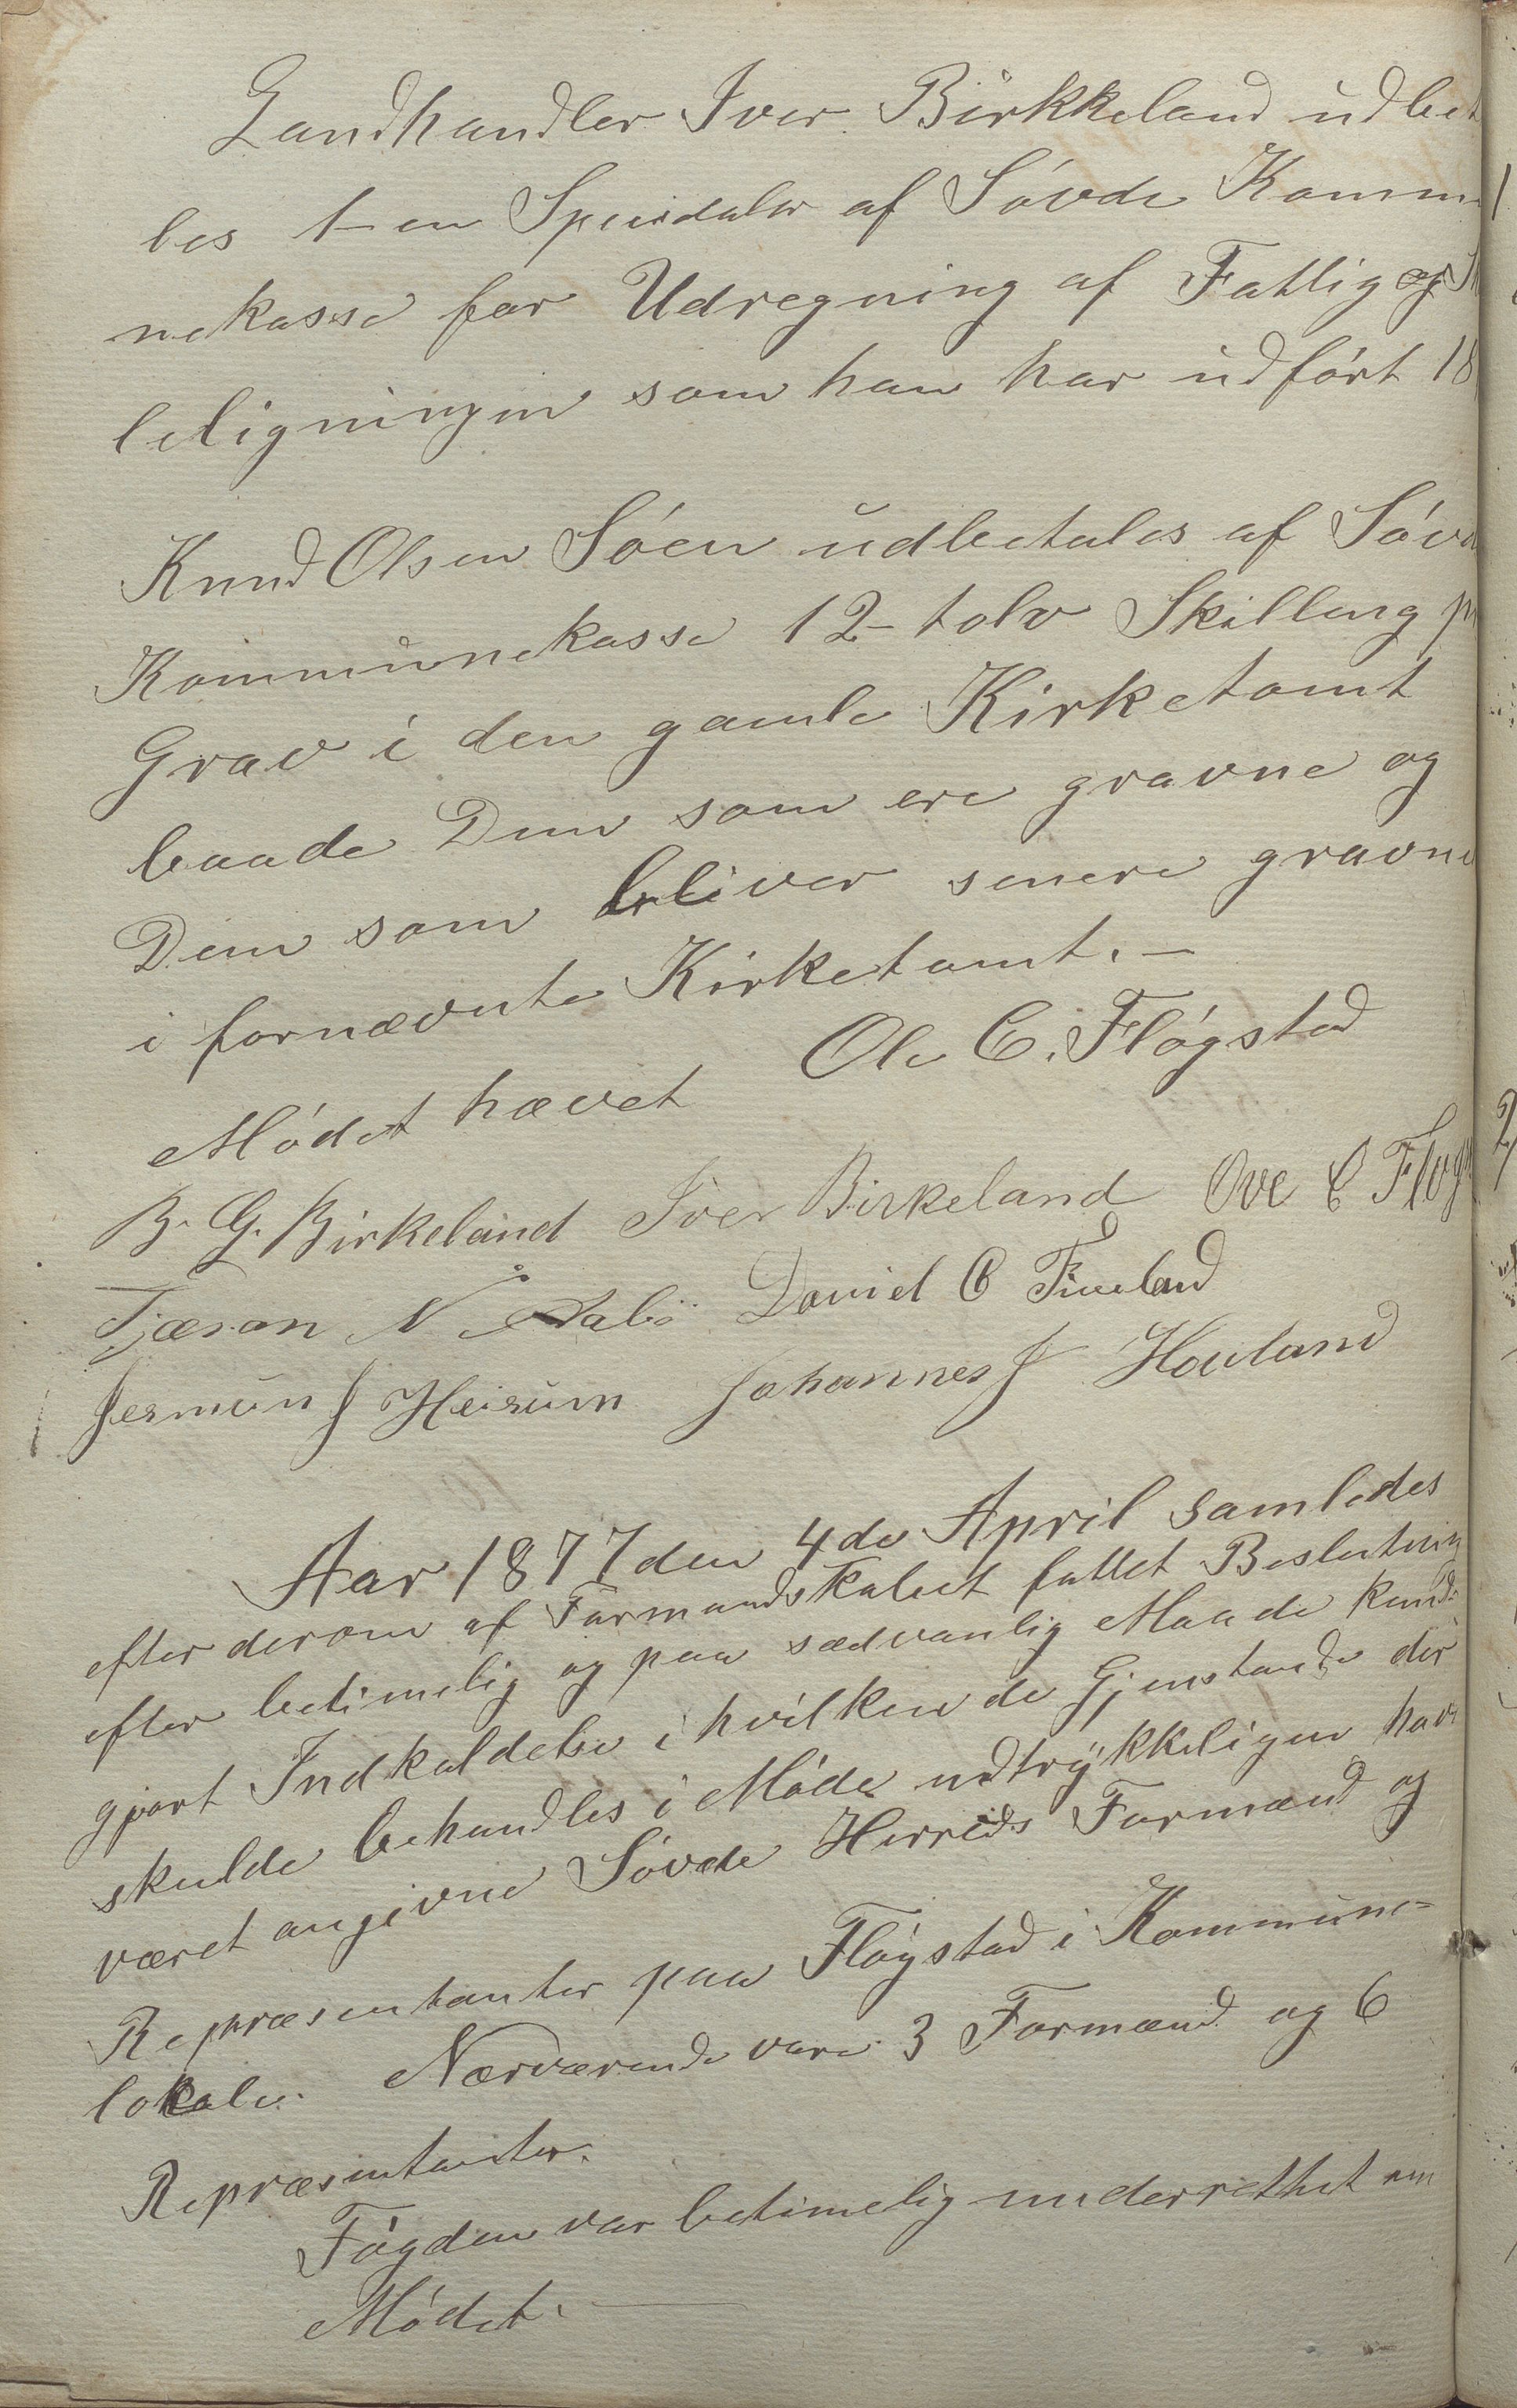 Landhandler Iver Birkkeland udbet
les 1-en Speisdaler af Søvde Kommu
nekasse for Udregning af Fattig og
leligningen som han har udført 18
Knud Olsen Søen udbetales af Søvd
Kommunekasse 12- tolv Skilling pr
Grav i den gamle Kirketomt
baade Dem som ere gravne og
Dem som bliver senere gravne
i fornævnte Kirketomt. -
Mødet hævet Ole C. Fløgstad
B. G. Birkeland Iver Birkeland Ove C Fløgs
Tjæran N Dalå David C Fiveland
Jermun J Heirum Johannes J Houland
Aar 1877 den 4de April samledes
efter derom af Formandskabet fattet Beslutning
efter betimelig og paa sædvanlig Maade kund-
gjort Indkaldelse i hvilken de Gjenstande der
skulde behandles i Møde udtrykkeligen hav
været angivne Søvde Herreds Formænd og
Repræsentanter paa Fløgstad i Kommune-
lokale. Nærværende vare 3 Formænd og 6
Repræsentanter.
Fogden var betimelig underrettet om
Mødet. —